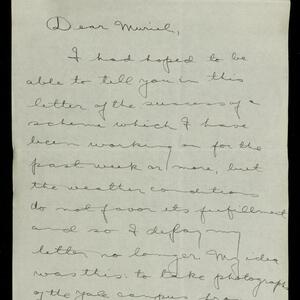 Dear Muriel,
I had hoped to be
able to tell you in this
letter of the success of a
scheme which I have
been working on for the
past week or more, but
the weather conditions
do not favor its fulfillment
and so I delay my
letter no longer. My idea
was this: to take photographs
of the Yale campus